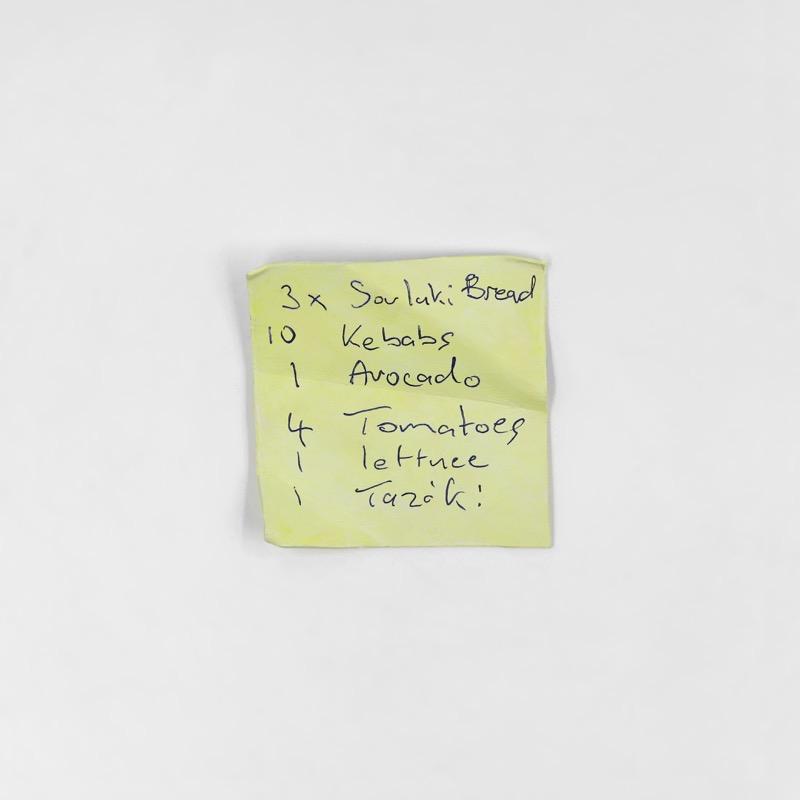 3x Souluki Bread
10 Kebabs
1 Avocado
4 Tomatoes
1 lettuce
1 Taziki